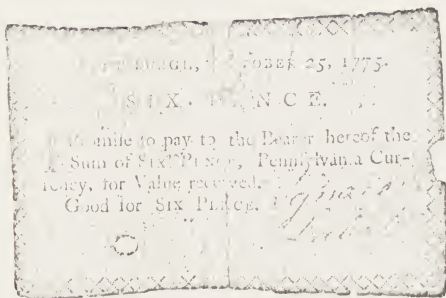 OCTOBER 25, 1775.
SIX-PENCE.
I Promise to pay to the Bearer hereof the
Sum of SIX PENCE, Pennsylvania Cur-
rency, for Value received.
Good for SIX PENCE.